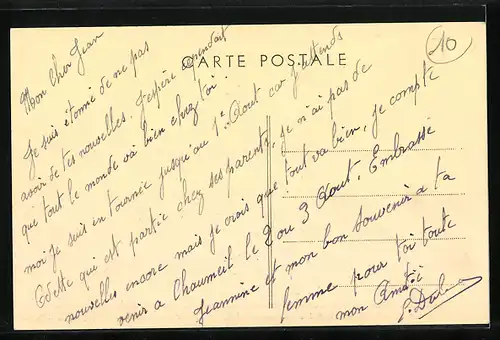 CARTE POSTALE
10
Mon Cher Jean
Je suis étonné de ne pas
avoir de tes nouvelles. J'espère cependant
que tout le monde va bien chez toi.
moi je suis en tournée jusqu'au 1er Aout car j'attends
Odette qui est partie chez ses parents, je n'ai pas de
nouvelles encore mais je crois que tout va bien, je compte
venir a Chaumeil le 2 ou 3 Aout, Embrassé
Jeannine et mon bon souvenir a ta
femme pour toi toute
mon Amitié